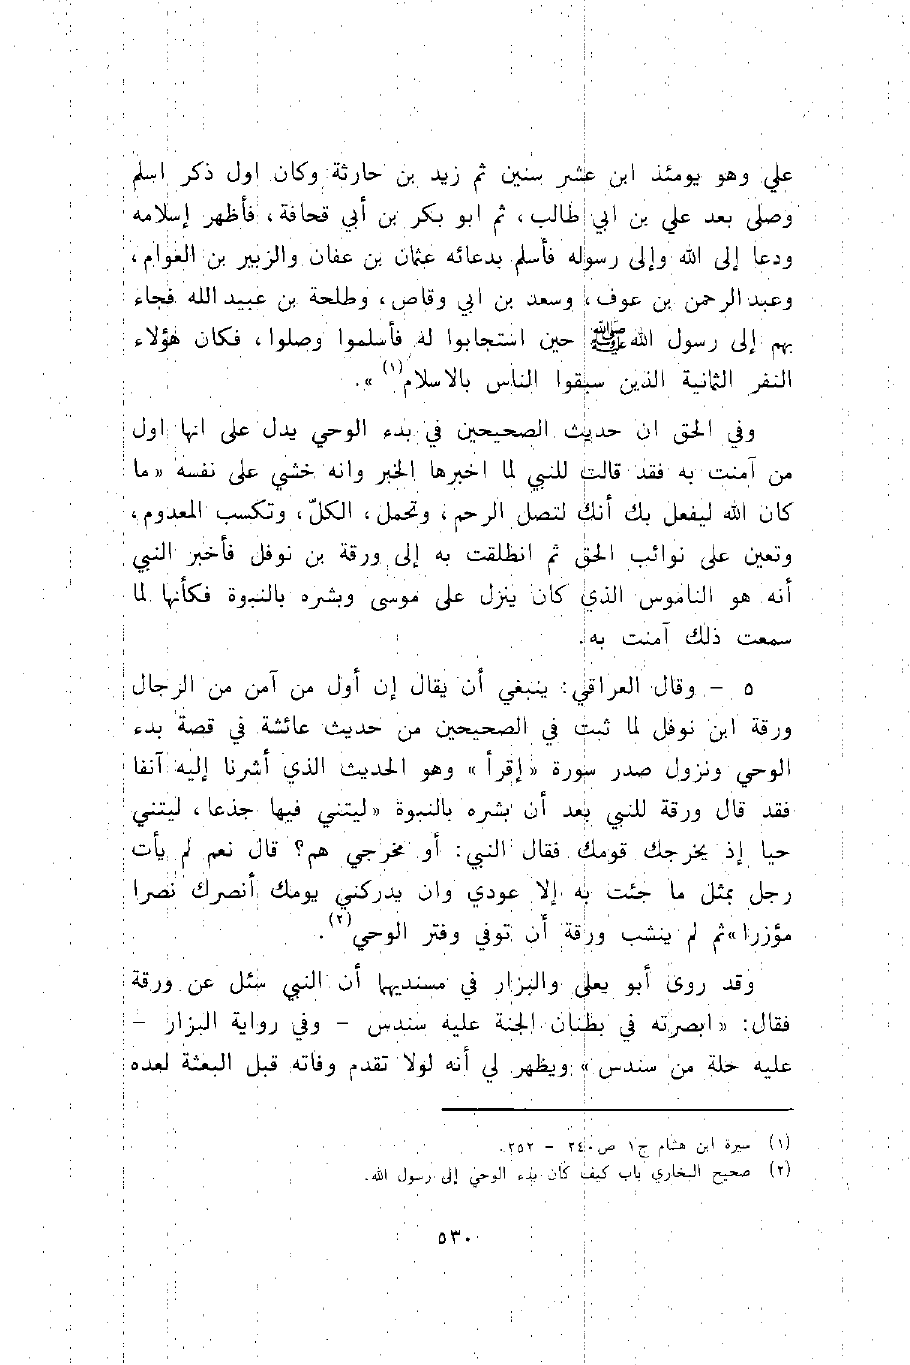 علي وهو يومئذ ابن عشر سنين ثم زيد بن حارثة وكان اول ذكر اسلم
وصلى بعد علي بن ابي طالب، ثم ابو بكر بن أبي قحافة، فأظهر إسلامه
ودعا إلى الله وإلى رسوله فأسلم بدعائه عثمان بن عفان والزبير بن العوام،
وعبد الرحمن بن عوف، وسعد بن ابي وقاص، وطلحة بن عبيد الله فجاء
بهم إلى رسول الله ﷺ حين استجابوا له فأسلموا وصلوا، فكان هؤلاء
النفر الثمانية الذين سبقوا الناس بالاسلام(١) ».
وفي الحق ان حديث الصحيحين في بدء الوحي يدل على انها اول
من آمنت به فقد قالت للنبي لما اخبرها الخبر وانه خشي على نفسه « ما
كان الله ليفعل بك أنك لتصل الرحم، وتحمل، الكلّ، وتكسب المعدوم،
وتعين على نوائب الحق ثم انطلقت به إلى ورقة بن نوفل فأخبر النبي
أنه هو الناموس الذي كان ينزل على موسى وبشره بالنبوة فكأنها لما
سمعت ذلك آمنت به.
٥ - وقال العراقي: ينبغي أن يقال إن أول من آمن من الرجال
ورقة ابن نوفل لما ثبت في الصحيحين من حديث عائشة في قصة بدء
الوحي ونزول صدر سورة «إقرأ » وهو الحديث الذي أشرنا إليه آنفا
فقد قال ورقة للنبي بعد أن بشره بالنبوة «ليتني فيها جذعا، ليتني
حيا إذ يخرجك قومك فقال النبي: أو مخرجي هم؟ قال نعم لم يأت
رجل بمثل ما جئت به إلا عودي وان يدركني يومك أنصرك نصرا
مؤزرا»ثم لم ينشب ورقة أن توفي وفتر الوحي(٢).
وقد روى أبو يعلي والبزار في مسنديهما أن النبي سئل عن ورقة
فقال: « ابصرته في بطنان الجنة عليه سندس - وفي رواية البزار -
عليه حلة من سندس » ويظهر لي أنه لولا تقدم وفاته قبل البعثة لعده
(١) سيرة ابن هشام ج١ ص٢٤٠ - ٢٥٢.
(٢) صحيح البخاري باب كيف كان بدء الوحي إلى رسول الله.
٥٣٠